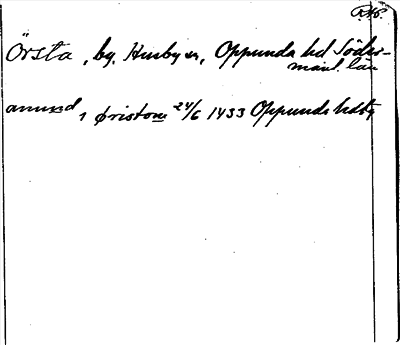 Örsta, by, Husby sn, Oppunda hd Söder-
manl. län
amund, ØristoM 24/6 1433 Oppunda hdtg